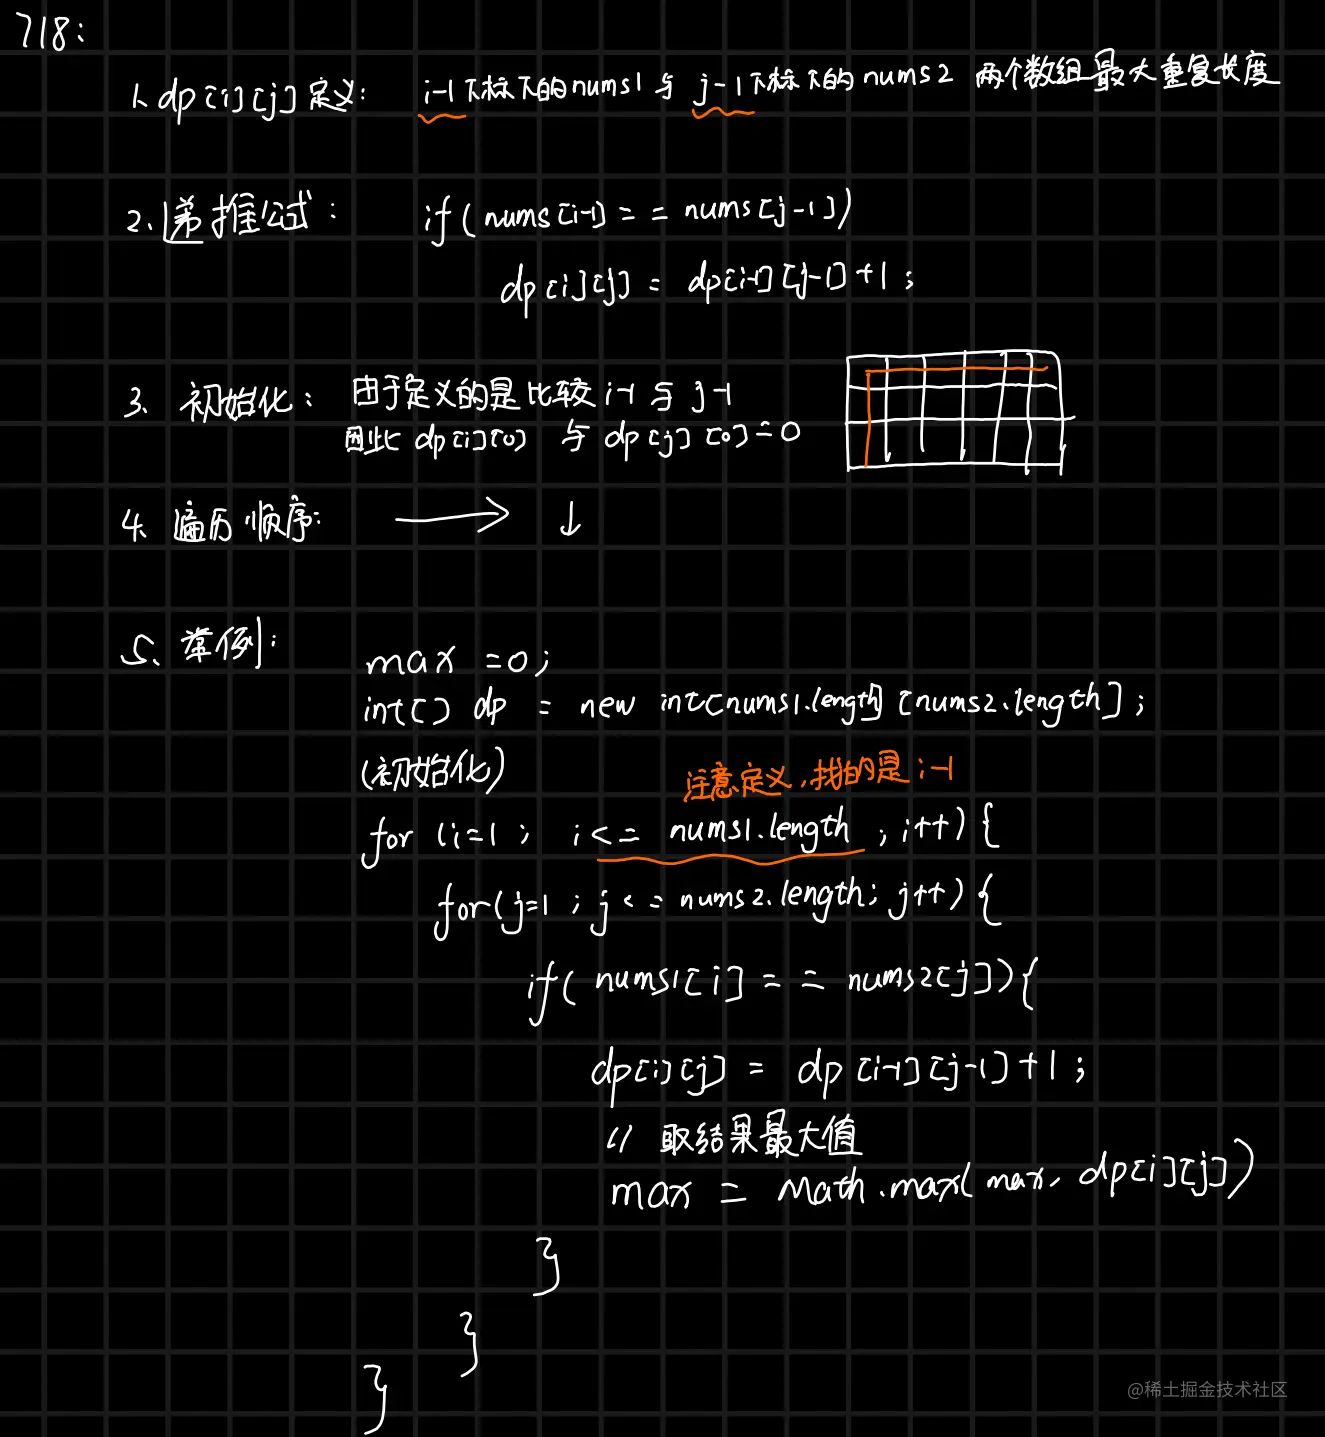 718:
1、dp[i][j]定义: i-1下标下的nums1与 j-1下标下的nums2 两个数组最大重复长度
2、递推公式: if(nums[i-1]==nums[j-1])
dp[i][j] = dp[i-1][j-1]+1;
3、初始化: 由于定义的是比较i-1与j-1
因此 dp[i][0] 与 dp[j][0]=0
4、遍历顺序: → ↓
5、举例:
max =0;
int[] dp = new int[nums1.length][nums2.length];
(初始化)
注意定义,找的是i-1
for (i=1; i<= nums1.length ; i++){
for(j=1; j<=nums2.length; j++){
if( nums1[i]== nums2[j]){
dp[i][j] = dp[i-1][j-1]+1;
// 取结果最大值
max = Math.max( max, dp[i][j])
}
}
}
@稀土掘金技术社区